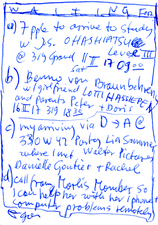 WAITING FOR
a) 7 ppl to arrive to study
w J.S. OHASHIATSU
Level III
@ 319 Grand II 17 0900
b) Benno von Braunbehrens
w/ girlfriend LOTTI HASSLER
and parents Peter + Doris
16 II 17 319 1835
c) my arriving via D → A @
330 W 42 Party Lia Sommer
where I met Walter Pictures
Danielle Gautier + Rachel
d) call from Marlis Momber so
I can help her with her phone +
computer problems remotely